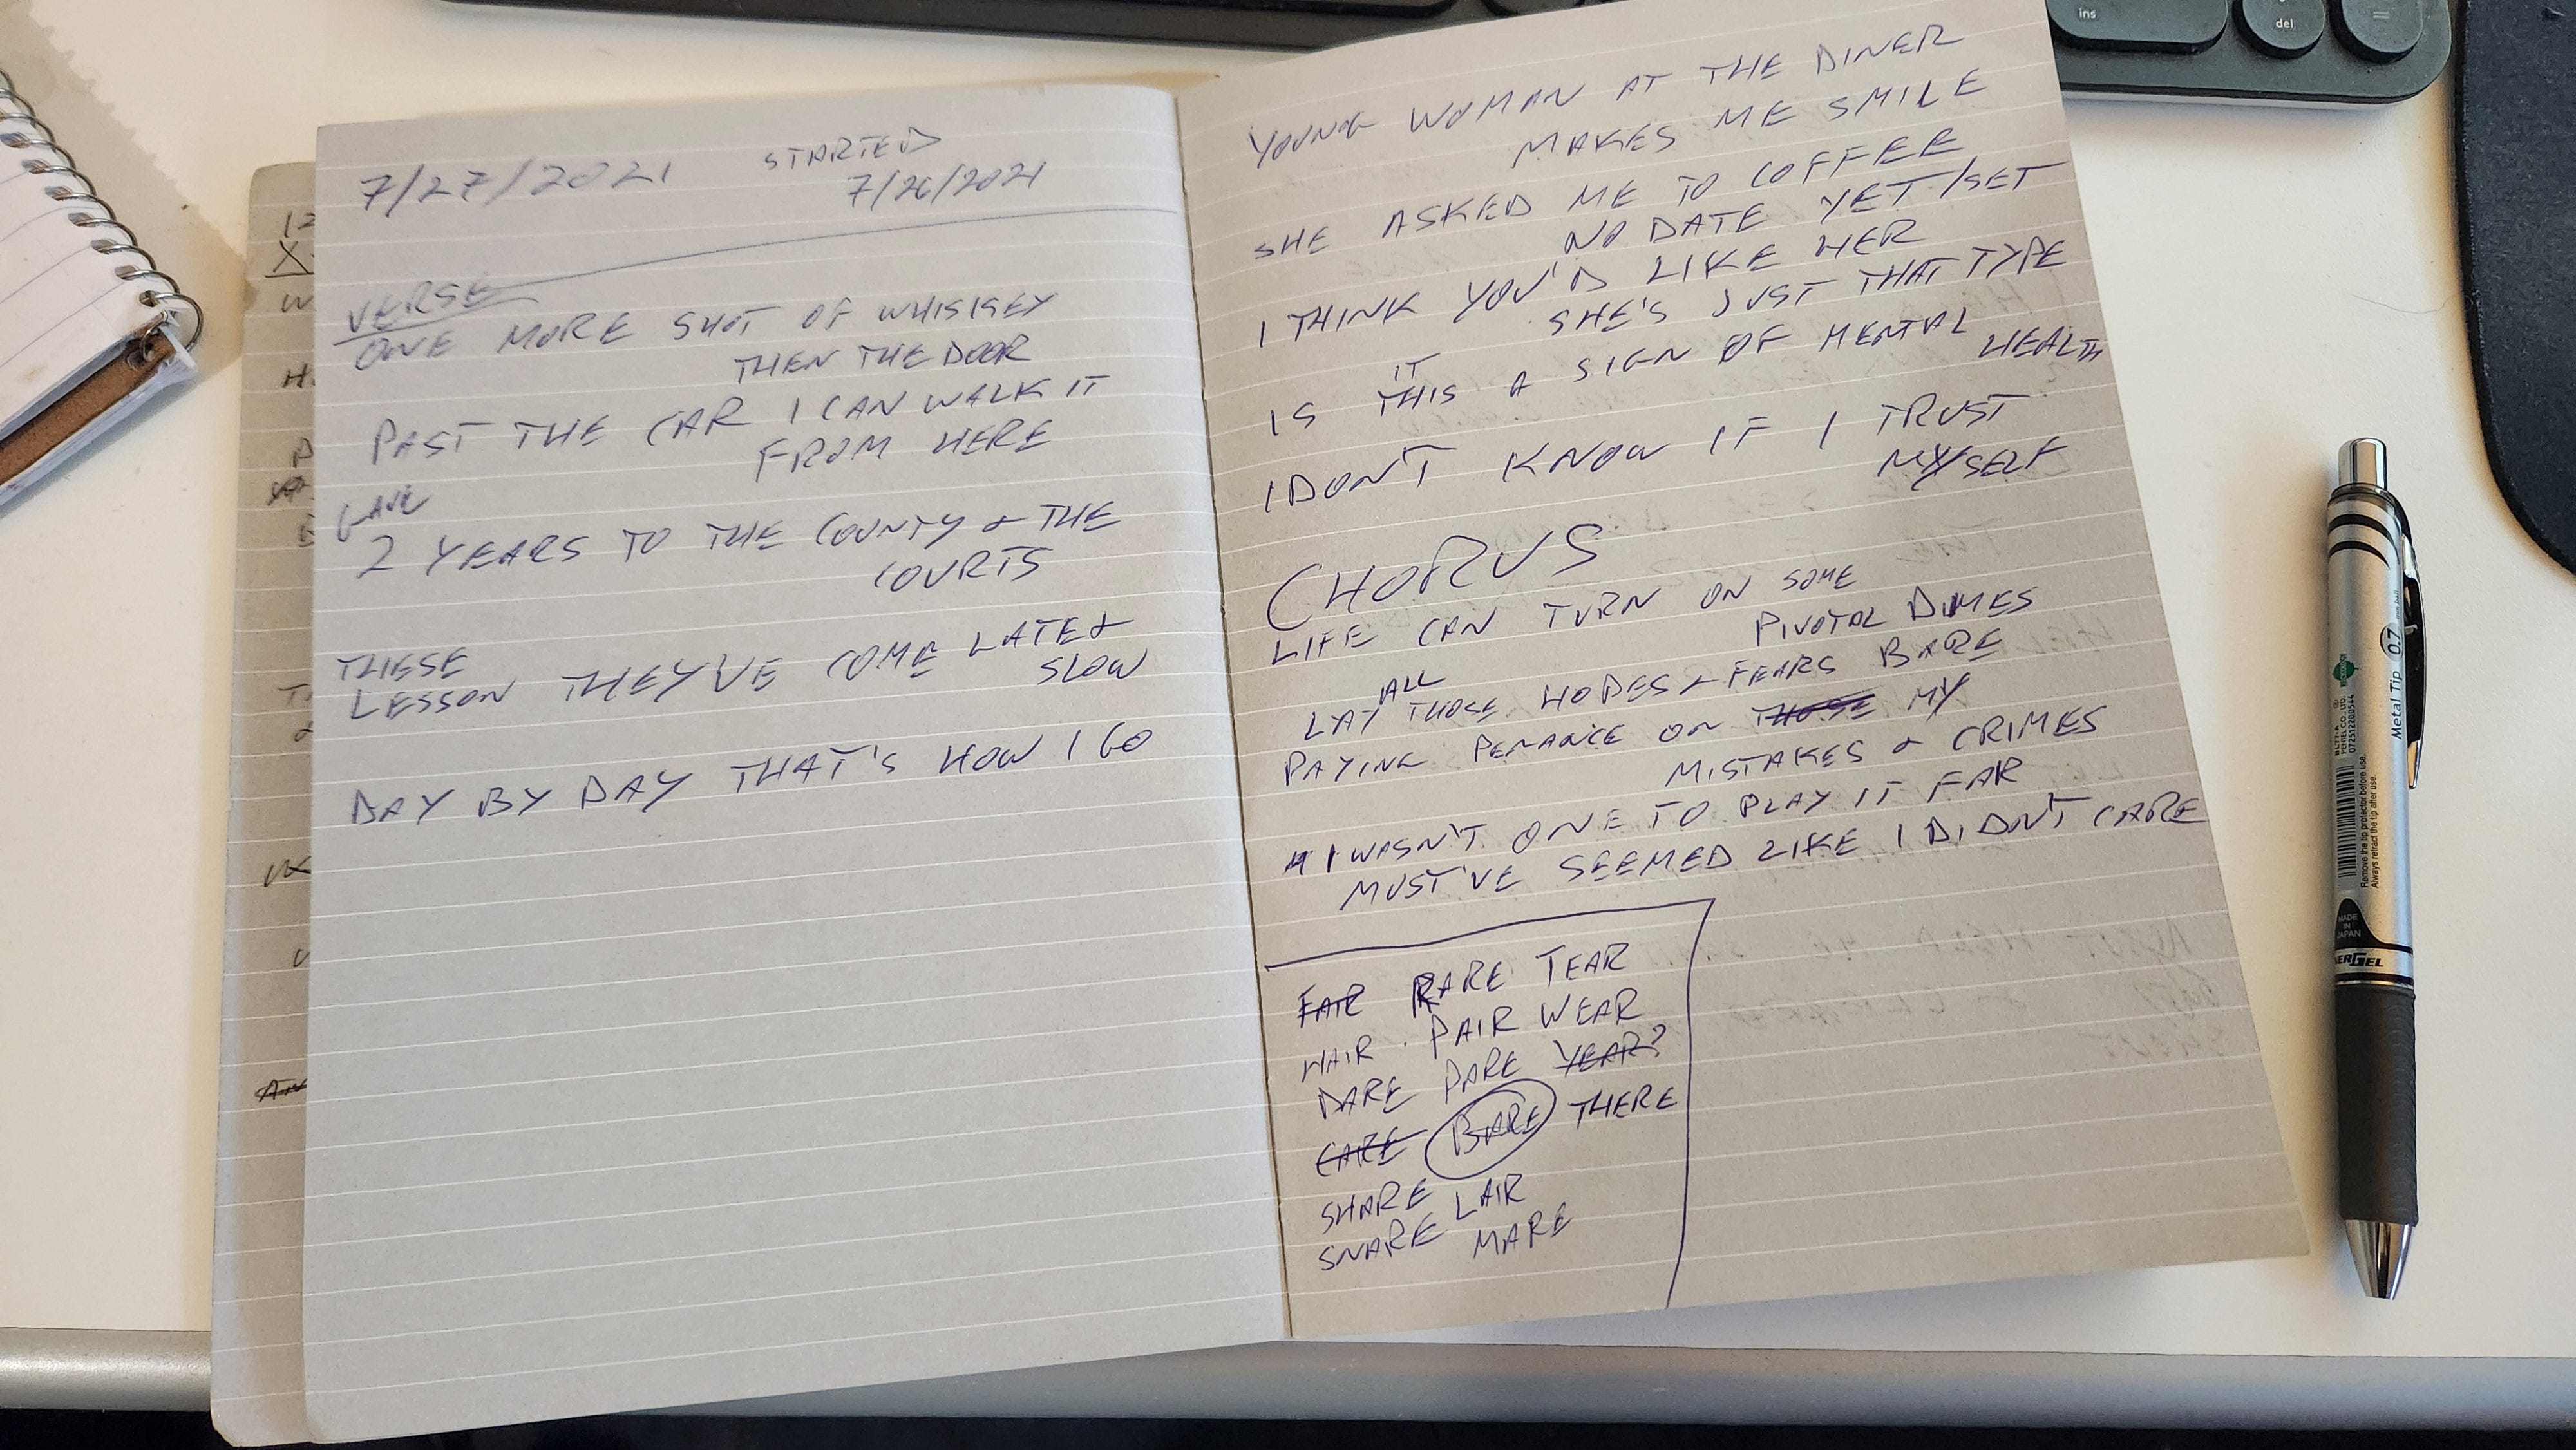 7/27/2021 STARTED
7/26/2021
VERSE
ONE MORE SHOT OF WHISKEY
THEN THE DOOR
PAST THE CAR I CAN WALK IT
FROM HERE
GAVE
2 YEARS TO THE COUNTY & THE
COURTS
THESE
LESSON THEY'VE COME LATE &
SLOW
DAY BY DAY THAT'S HOW I GO
YOUNG WOMAN AT THE DINER
MAKES ME SMILE
SHE ASKED ME TO COFFEE
NO DATE YET/SET
I THINK YOU'D LIKE HER
SHE'S JUST THAT TYPE
IT
IS THIS A SIGN OF MENTAL
HEALTH
I DON'T KNOW IF I TRUST
MYSELF
CHORUS
LIFE CAN TURN ON SOME
PIVOTAL DIMES
ALL
LAY THOSE HOPES & FEARS BARE
PAYING PENANCE ON THOSE MY
MISTAKES & CRIMES
I WASN'T ONE TO PLAY IT FAR
MUST'VE SEEMED LIKE I DIDN'T CARE
FAIR RARE TEAR
HAIR PAIR WEAR
DARE PARE YEAR?
CARE BARE THERE
SHARE LAIR
SNARE MARE
ins
del
=
Metal Tip 0.7
PENTEL CO., LTD.
072512200544
Remove the tip protector before use.
Always retract the tip after use.
MADE
IN
JAPAN
ERGEL
12
X
W